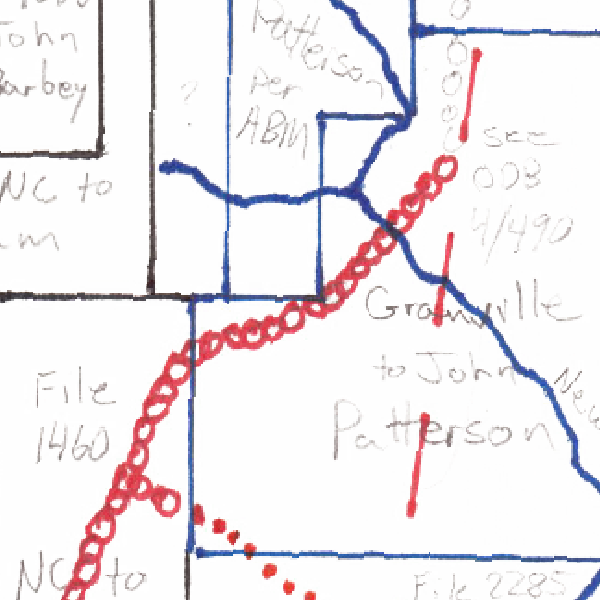 John
Barbey
NC to
Patterson
per
ABM
?
SEE
ODB
4/490
Granville
to John
Patterson
New
File
1460
NC to
File 2285